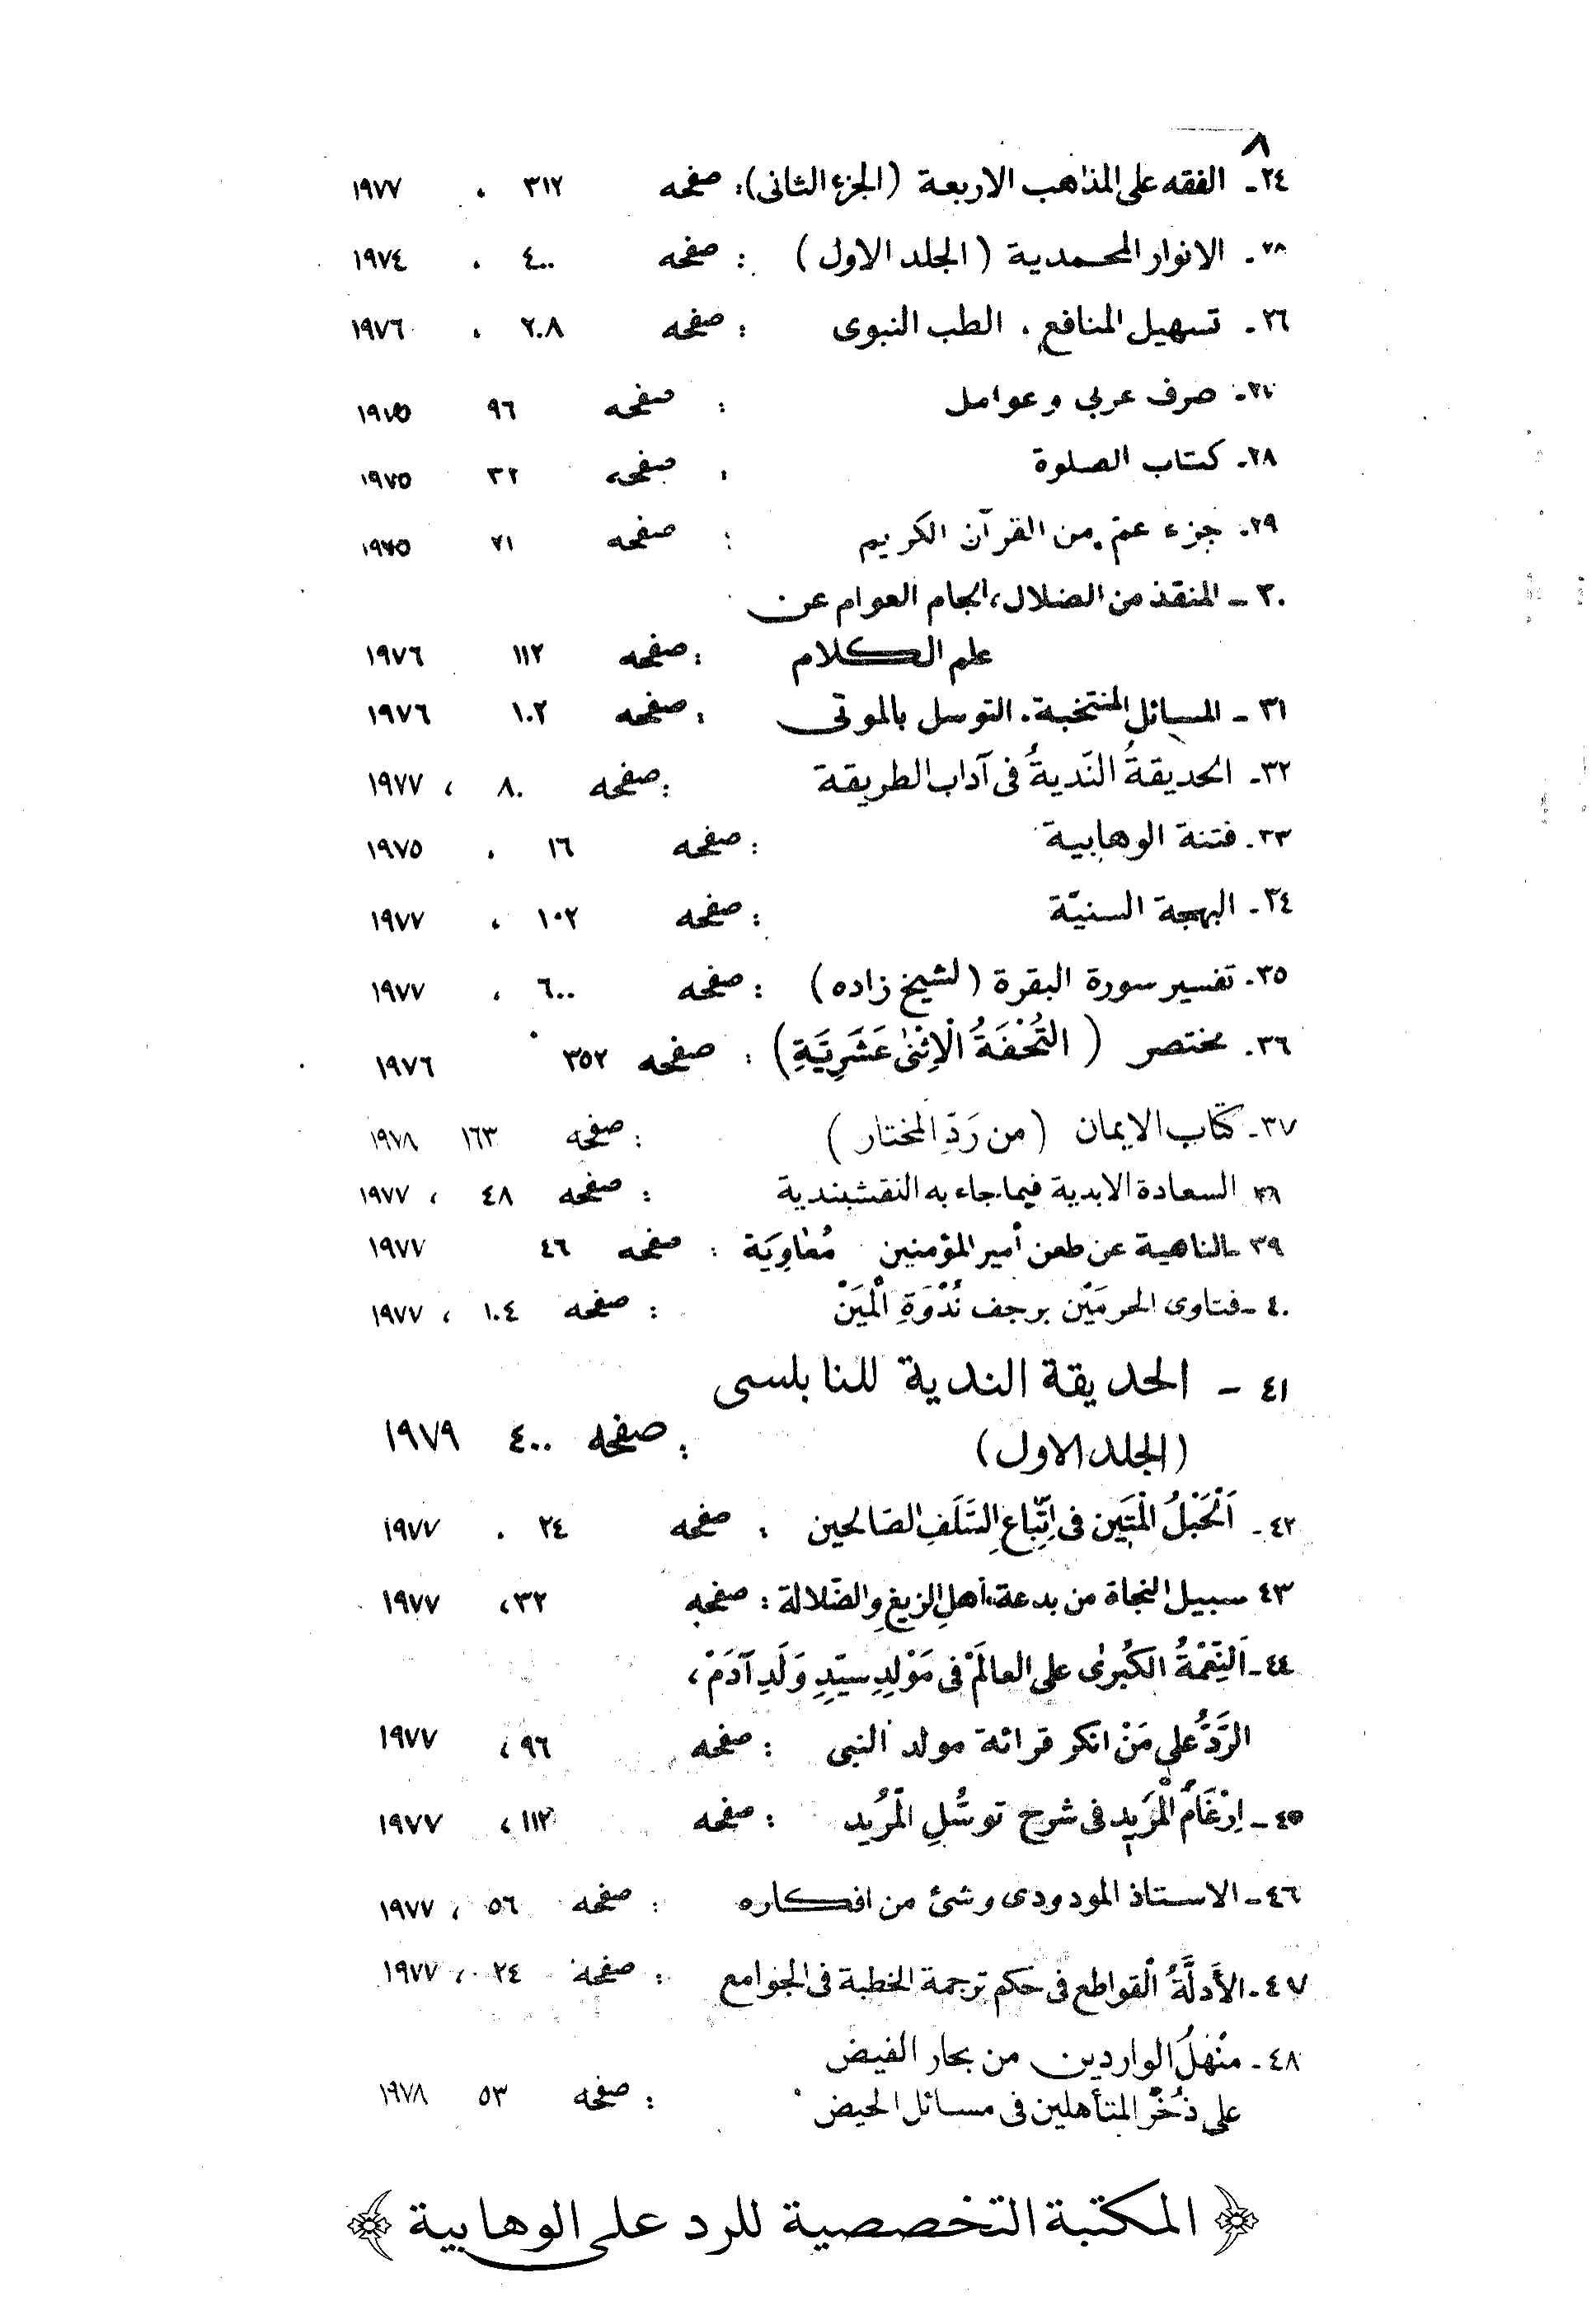 ٨
٢٤ـ الفقه على المذاهب الاربعة (الجزء الثانى): صفحه ٣١٢ ، ١٩٧٧
٢٨ـ الانوار المحمدية (الجلد الاول) : صفحه ٤٠٠ ، ١٩٧٤
٢٦ـ تسهيل المنافع ، الطب النبوى : صفحه ٢٠٨ ، ١٩٧٦
٢٧ـ صرف عربى و عوامل : صفحه ٩٦ ١٩٧٥
٢٨ـ كتاب الصلوة : صفحه ٣٢ ١٩٧٥
٢٩ـ جزء عمّ من القرآن الكريم : صفحه ٧١ ١٩٧٥
٣٠ـ المنقذ من الضلال، الجام العوام عن
علم الكلام : صفحه ١١٢ ١٩٧٦
٣١ـ المسائل المنتخبة. التوسل بالموتى : صفحه ١٠٢ ١٩٧٦
٣٢ـ الحديقةُ النَديةُ فى آداب الطريقة : صفحه ٨٠ ، ١٩٧٧
٣٣ـ فتنة الوهابية : صفحه ١٦ ، ١٩٧٥
٣٤ـ البهجة السنيّة : صفحه ١٠٢ ، ١٩٧٧
٣٥ـ تفسير سورة البقرة (لشيخ زاده) : صفحه ٦٠٠ ، ١٩٧٧
٣٦ـ مختصر (التُحْفَةُ الْاِثْنىٰ عَشَرِيَّةِ) : صفحه ٣٥٢ ١٩٧٦
٣٧ـ كتاب الايمان (من رَدِّ المختار) : صفحه ١٦٣ ١٩٧٨
٣٨ السعادة الابدية فيما جاء به النقشبندية : صفحه ٤٨ ، ١٩٧٧
٣٩ـ الناهية عن طعن أمير المؤمنين مُعٰاوِيَة : صفحه ٤٦ ١٩٧٧
٤٠ـ فتاوى الحرمَيْن برجف نُدْوَةِ الْمَيَنْ : صفحه ١٠٤ ، ١٩٧٧
٤١ـ الحديقة الندية للنابلسى
(الجلد الاول) : صفحه ٤٠٠ ١٩٧٩
٤٢ـ اَلْحَبْلُ الْمَتين فى اِتِّباعِ السَّلَفِ الصَالحين : صفحه ٢٤ ، ١٩٧٧
٤٣ سبيل النجاة من بدعة أهلِ الزيغِ والضّلالة : صفحه ٣٢، ١٩٧٧
٤٤ـ اَلنِّعْمَةُ الكُبرىٰ على العالَمْ فى مَوْلِدِ سيّدِ وَلَدِ آدَمْ،
الرَّدُّ على مَنْ انكر قرائة مولد النبى : صفحه ٩٦، ١٩٧٧
٤٥ـ اِرْغَامُ الْمَرِيد فى شرح توسُّلِ الْمُريد : صفحه ١١٢، ١٩٧٧
٤٦ـ الاستاذ المودودى وشئ من افكاره : صفحه ٥٦ ، ١٩٧٧
٤٧ـ الأَدلَّةُ الْقواطع فى حكم ترجمة الخطبة فى الجوامع : صفحة ٢٤ ، ١٩٧٧
٤٨ـ منْهلُ الواردين من بحار الفيض
على ذُخْر المتأهلين فى مسائل الحيض : صفحه ٥٣ ١٩٧٨
المكتبة التخصصية للرد على الوهابية